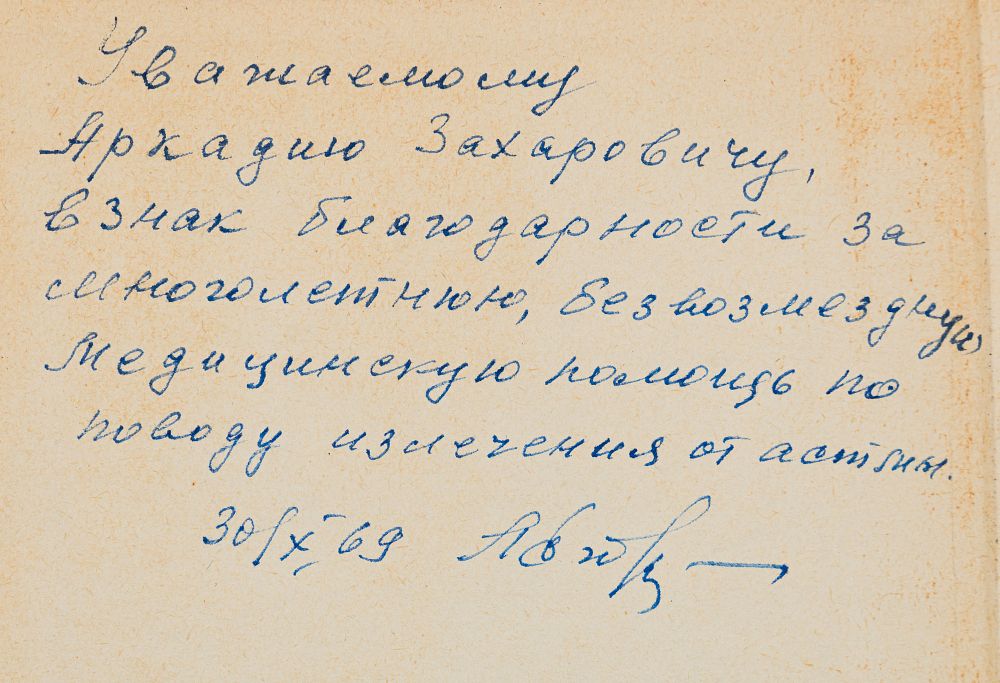 Уважаемому
Аркадию Захаровичу,
в знак благодарности за
многолетнюю, безвозмездную
медицинскую помощь по
поводу излечения от астмы.
30/X 69